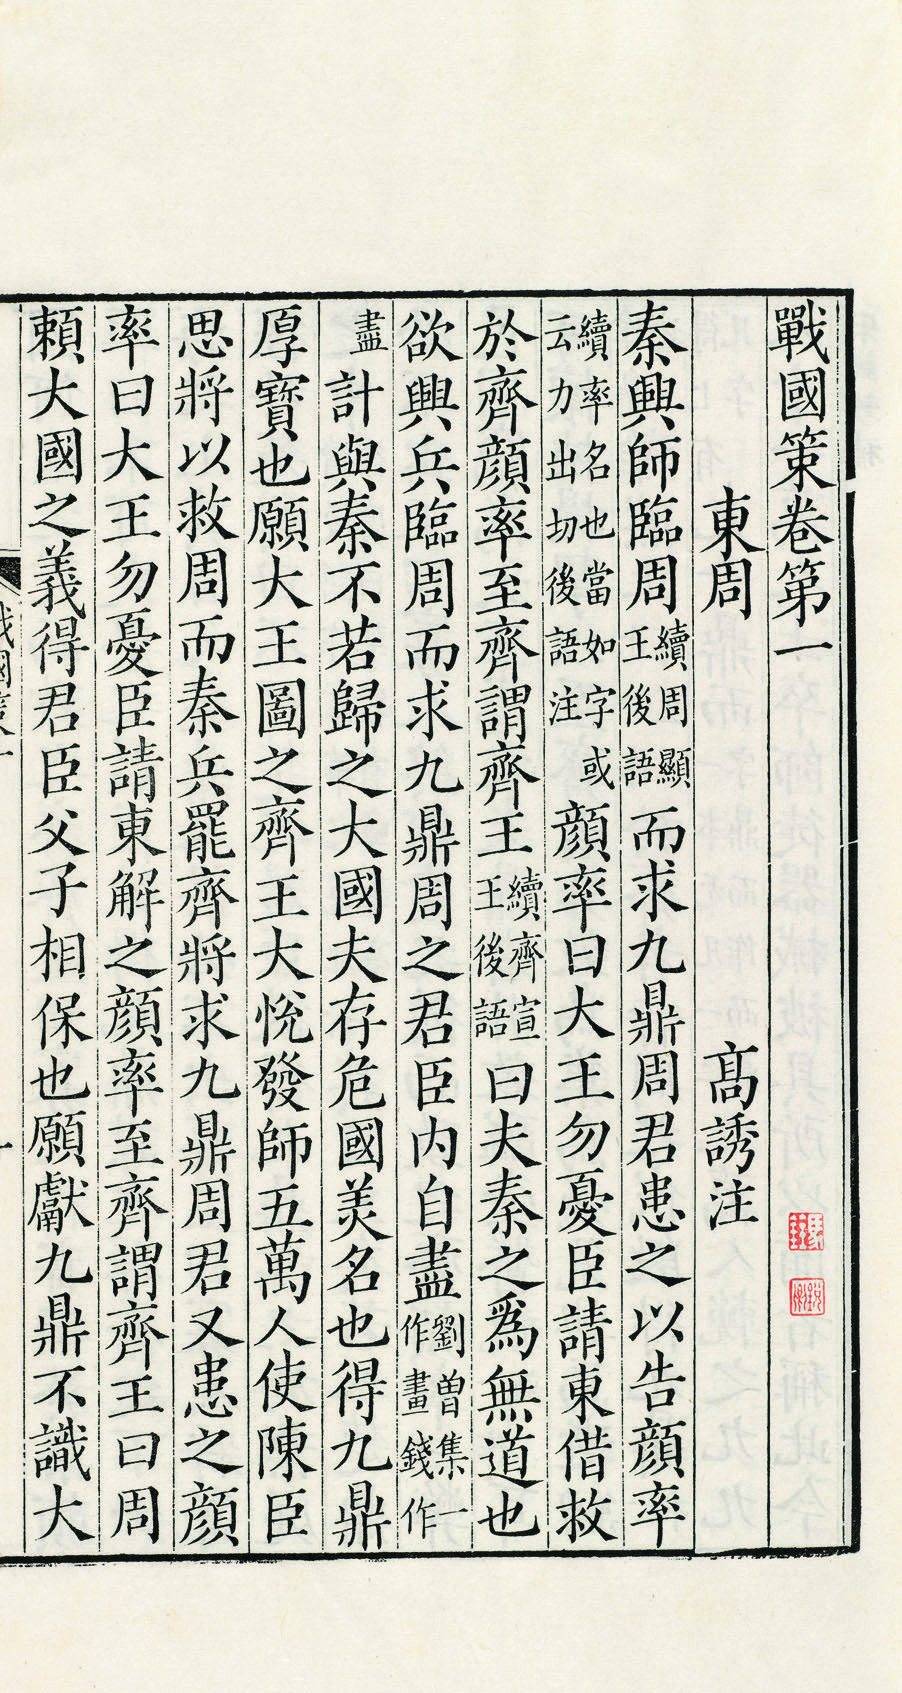 戰國策卷第一
東周 高誘注
秦興師臨周續周顯王後語而求九鼎周君患之以告顔率
續率名也當如字或云力出切後語注顔率曰大王勿憂臣請東借救
於齊顔率至齊謂齊王續齊宣王後語曰夫秦之爲無道也
欲興兵臨周而求九鼎周之君臣内自盡劉曽集一作畫錢作
盡計與秦不若歸之大國夫存危國美名也得九鼎
厚寶也願大王圖之齊王大恱發師五萬人使陳臣
思將以救周而秦兵罷齊將求九鼎周君又患之顔
率曰大王勿憂臣請東解之顔率至齊謂齊王曰周
頼大國之義得君臣父子相保也願獻九鼎不識大